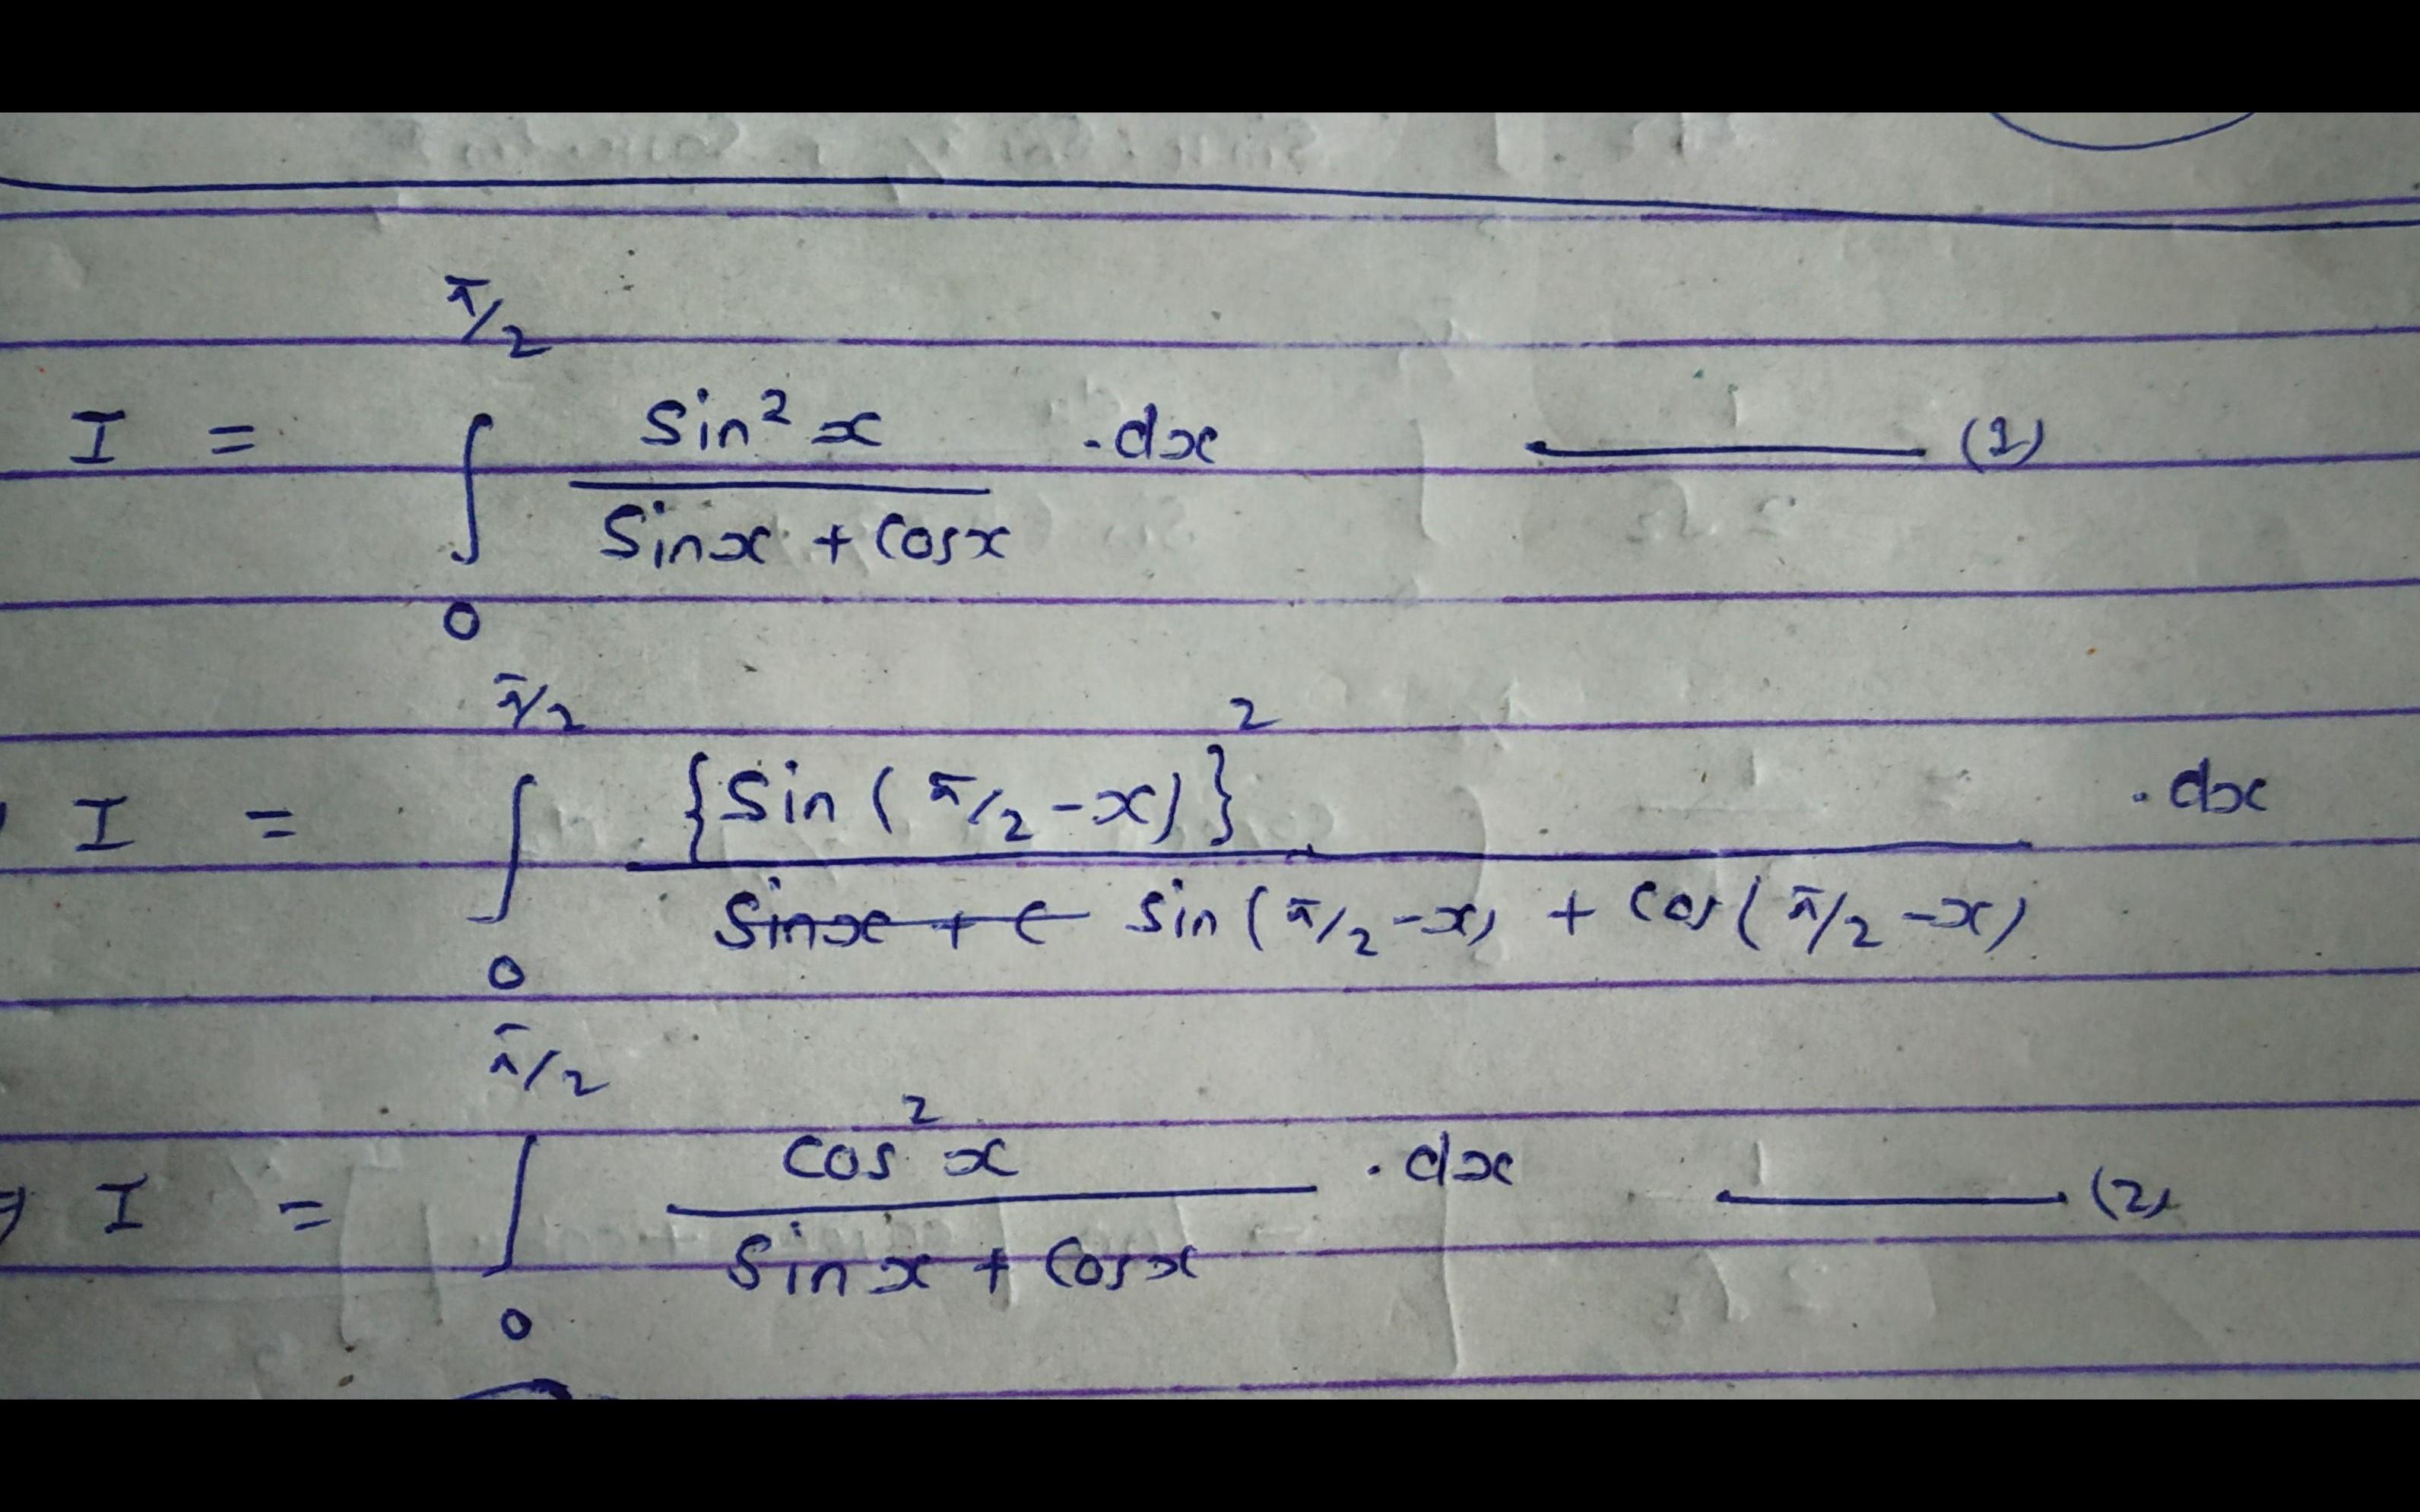 π/2
I = ∫ Sin² x / Sinx + Cosx . dx ——— (1)
0
π/2
I = ∫ {Sin (π/2 - x)}² / ~~Sinx + C~~ Sin (π/2 - x) + Cos (π/2 - x) . dx
0
π/2
⇒ I = ∫ Cos² x / Sin x + Cosx . dx ——— (2)
0